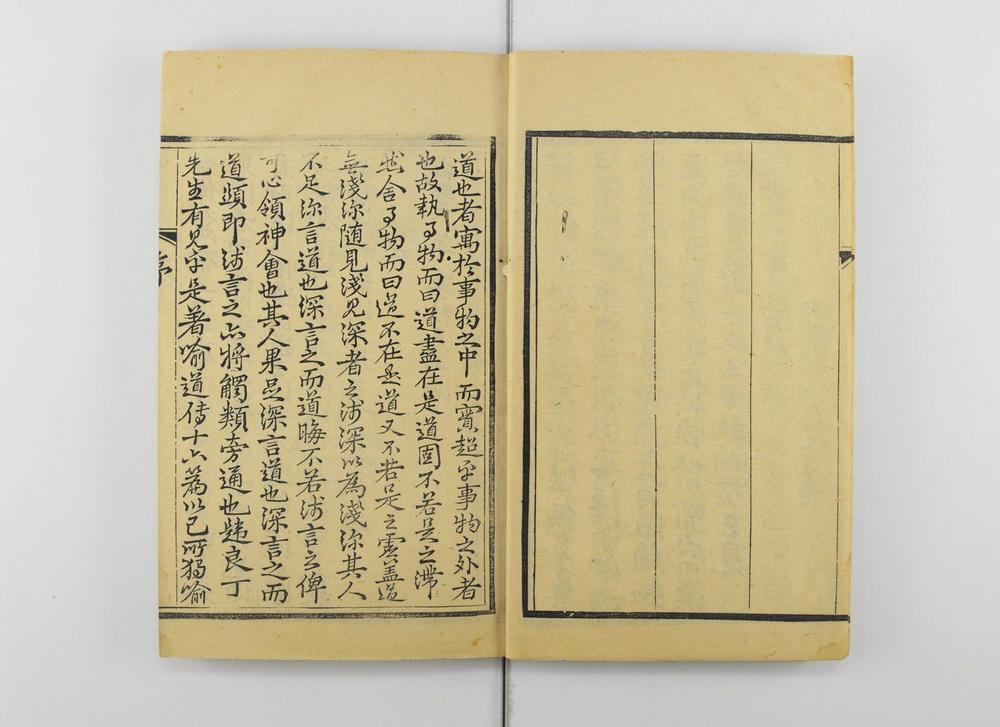 道也者寓於事物之中而實超乎事物之外者
也故執事物而曰道盡在是道固不若是之滯
然舍事物而曰道不在是道又不若是之虛蓋道
無淺深隨見淺見深者之淺深以為淺深其人
不足深言道也深言之而道晦不若淺言之俾
可心領神會也其人果足深言道也深言之而
道顯即淺言之亦將觸類旁通也韙良丁
先生有見乎是著喻道傳十六篇以已所獨喻
序